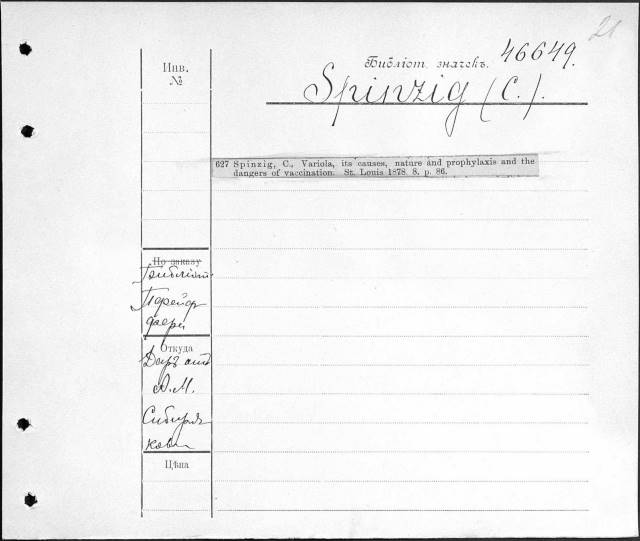 21
Инв.
№
Библіот. значекъ.
46649.
Spinzig (C.).
627 Spinzig, C., Variola, its causes, nature and prophylaxis and the
dangers of vaccination. St. Louis 1878. 8. p. 86.
По заказу
Откуда
Даръ
А.М.
Сибиря
кова
Цѣна